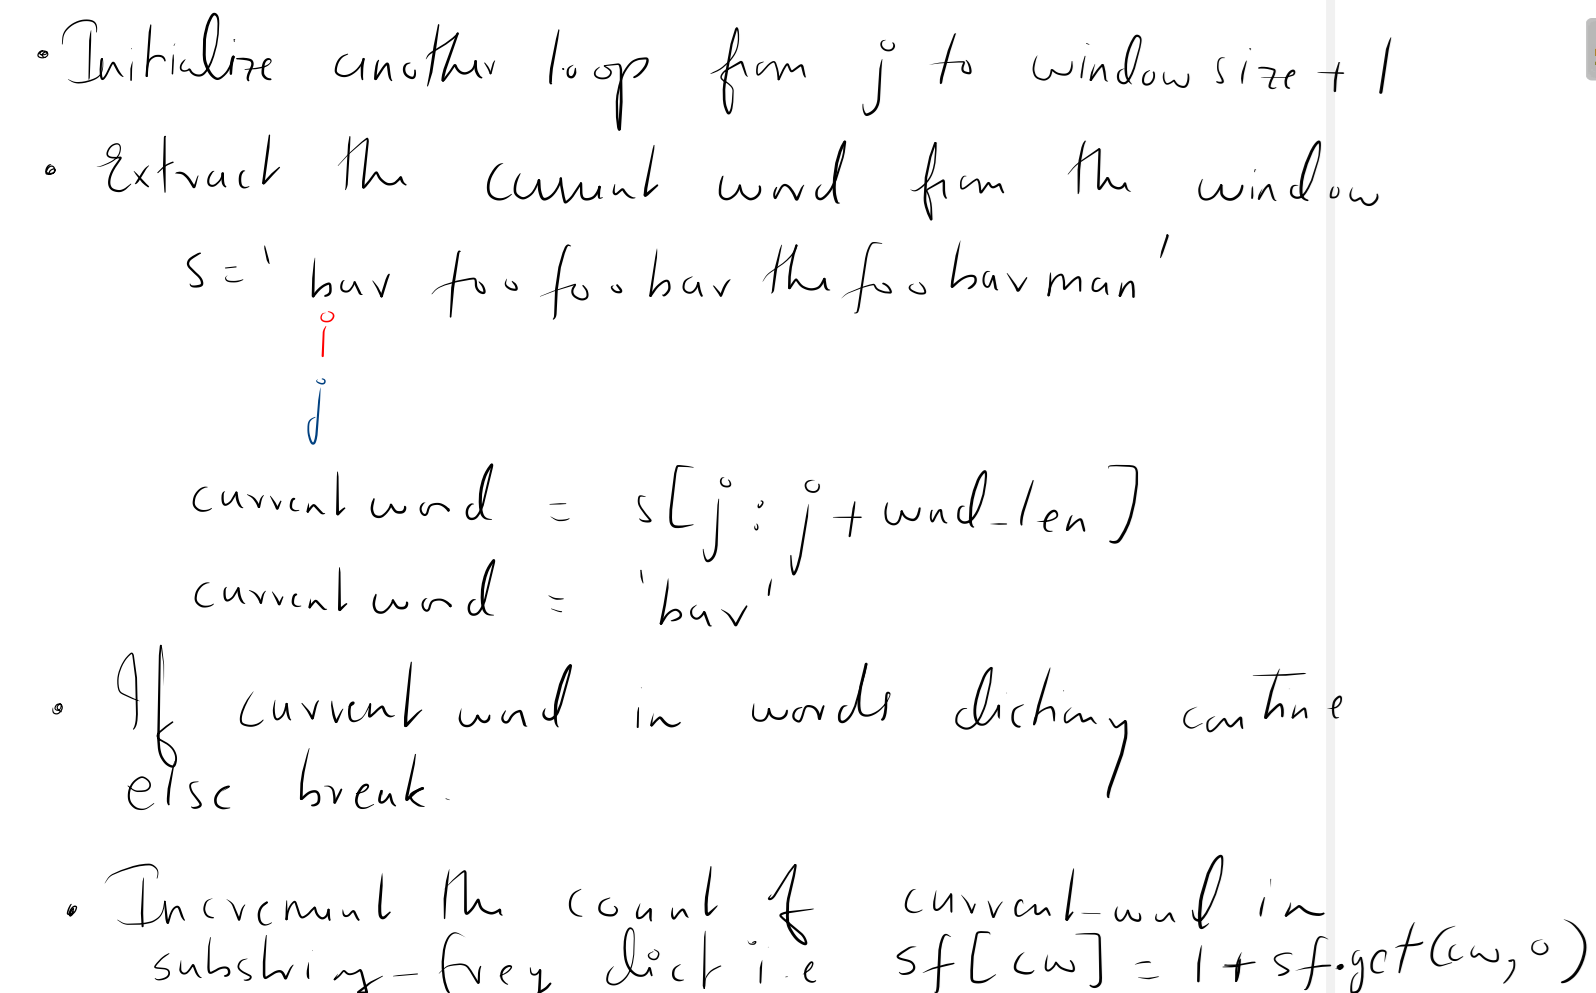 • Initialize another loop from j to window size + 1
• Extract the current word from the window
s = 'bar foo foo bar the foo bar man'
i
j
current word = s[j : j + word_len]
current word = 'bar'
• If current word in words dictionary continue
else break.
• Increment the count of current_word in
substring_freq dict i.e sf[cw] = 1 + sf.get(cw, 0)